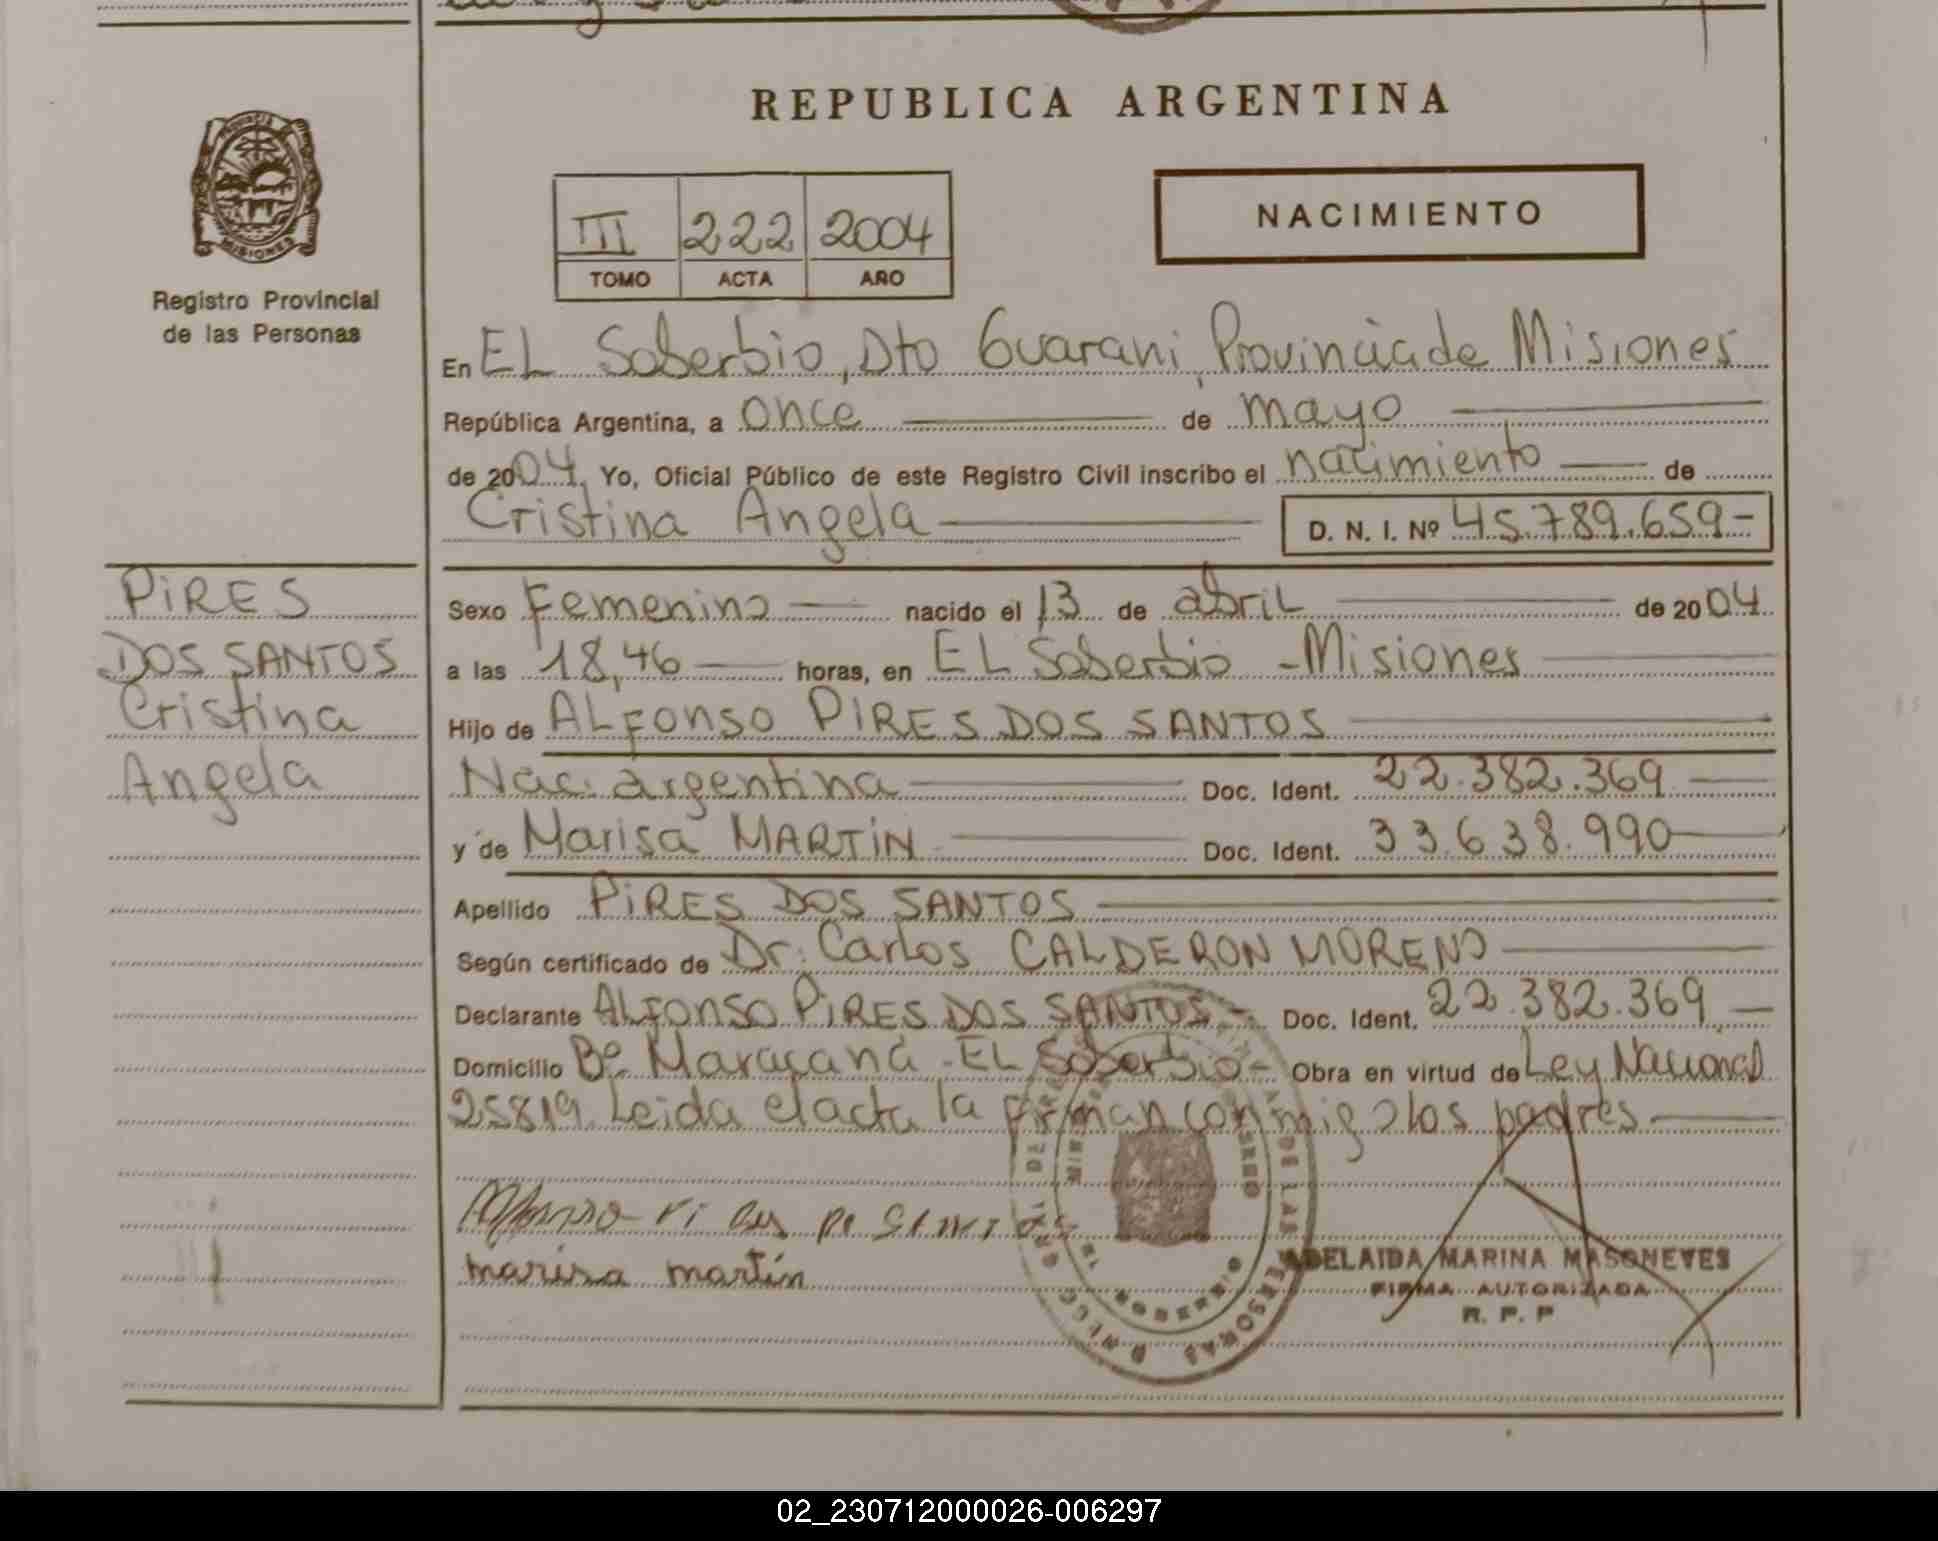 PROVINCIA DE
MISIONES
Registro Provincial
de las Personas
REPUBLICA ARGENTINA
III 222 2004
TOMO ACTA AÑO
NACIMIENTO
En EL Soberbio, Dto Guarani, Provincia de Misiones
República Argentina, a once de mayo
de 2004. Yo, Oficial Público de este Registro Civil inscribo el nacimiento de
Cristina Angela D. N. I. Nº 45.789.659-
PIRES
DOS SANTOS
Cristina
Angela
Sexo Femenino nacido el 13 de abril de 2004
a las 18,46 horas, en EL Soberbio - Misiones
Hijo de ALFONSO PIRES DOS SANTOS
Nac. argentina Doc. Ident. 22.382.369
y de Marisa MARTIN Doc. Ident. 33.638.990
Apellido PIRES DOS SANTOS
Según certificado de Dr. Carlos CALDERON MORENO
Declarante ALFONSO PIRES DOS SANTOS - Doc. Ident. 22.382.369
Domicilio Bº Maracaná - EL Soberbio - Obra en virtud de Ley Nacional
25819. Leida el acta la firman conmigo los padres
marisa martin
ADELAIDA MARINA MASONEVES
FIRMA AUTORIZADA
R. P. P
02_230712000026-006297